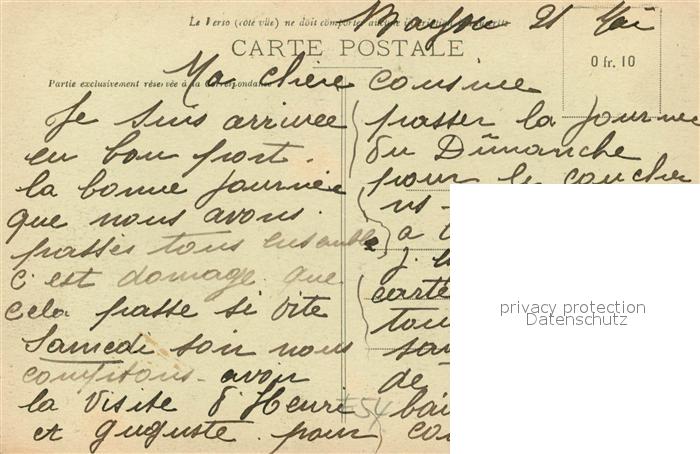 Le Verso (côté vue) ne doit comporter aucune inscription manuscrite
21 Mai
CARTE POSTALE
0 fr. 10
Ma chère cousine
Partie exclusivement réservée à la Correspondance
Je suis arrivée
en bon port.
la bonne journée
que nous avons.
passés tous ensemble
c'est domage que
cela passe si vite
Samedi soir nous
comptons avoir
la visite d'Henri
et Auguste. pour
passer la journée
du Dimanche
pour le coucher
ns
a
j.
carte
tou
sa
de
bai
co
54
privacy protection
Datenschutz